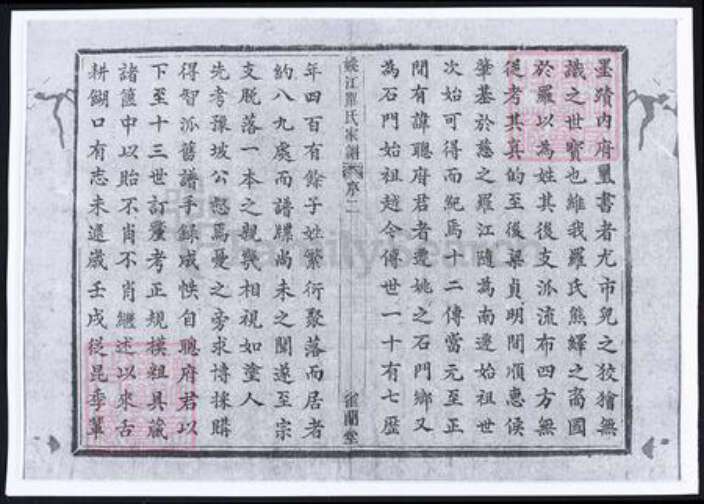 墨蹟內府璽書者尤市兒之狡獪無
識之世寶也維我羅氏熊繹之裔國
於羅以為姓其後支派流布四方無
從考其真的至後梁貞明間順惠侯
肇基於慈之羅江隨為南遷始祖世
次始可得而紀焉十二傳當元至正
間有諱聰府君者遷姚之石門鄉又
為石門始祖越今傳世一十有七歷
姚江羅氏家譜 序二 蘭堂
年四百有餘子姓繁衍聚落而居者
約八九處而譜牒尚未之闕遂至宗
支脫落一本之親幾相視如塗人
先考豫坡公怒焉憂之旁求博採購
得智派舊譜手錄成帙自聰府君以
下至十三世訂釐考正規模粗具藏
諸篋中以貽不肖不肖繼述以來舌
耕餬口有志未遑歲壬戌從昆季輩